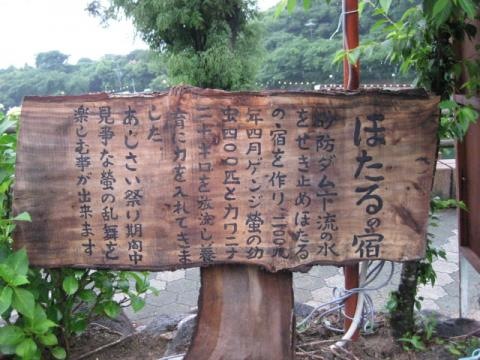 ほたるの宿
砂防ダム下流の水
をせき止めほたる
の宿を作り、二〇〇九
年四月ゲンジ螢の幼
虫四〇〇匹とカワニナ
二十キロを放流し養
育に力を入れてきま
した
あじさい祭り期間中
見事な螢の乱舞を
楽しむ事が出来ます